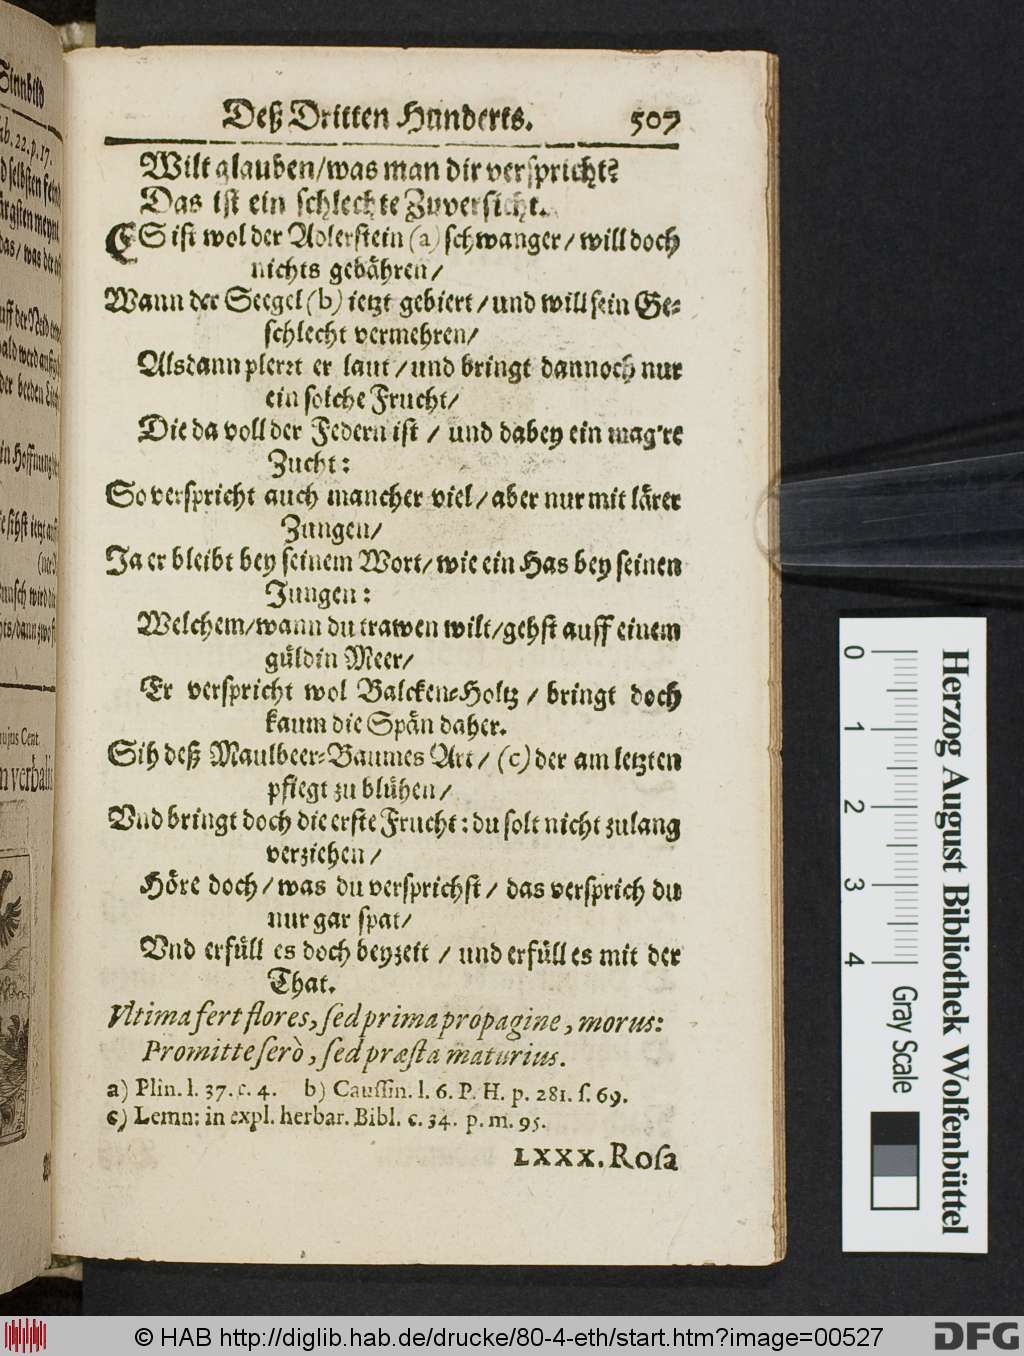 Sinnbild
Deß Dritten Hunderts. 507
Wilt glauben/was man dir verspricht?
Das ist ein schlechte Zuversicht.
ES ist wol der Adlerstein (a) schwanger/ will doch
nichts gebähren/
Wann der Seegel (b) ietzt gebiert/ und will sein Ge-
schlecht vermehren/
Alsdann plerrt er laut/und bringt dannoch nur
ein solche Frucht/
Die da voll der Federn ist / und dabey ein mag're
Zucht:
So verspricht auch mancher viel/ aber nur mit lärer
Zungen/
Ja er bleibt bey seinem Wort/ wie ein Has bey seinen
Jungen:
Welchem/wann du trawen wilt/gehst auff einem
güldin Meer/
Er verspricht wol Balcken-Holtz / bringt doch
kaum die Spän daher.
Sih deß Maulbeer-Baumes Art/ (c) der am letzten
pflegt zu blühen/
Vnd bringt doch die erste Frucht: du solt nicht zulang
verziehen/
Höre doch/ was du versprichst/ das versprich du
nur gar spat/
Vnd erfüll es doch beyzeit / und erfüll es mit der
That.
Vltima fert flores, sed prima propagine, morus:
Promitte serò, sed præsta maturius.
a) Plin. l. 37. c. 4. b) Caussin. l. 6. P. H. p. 281. s. 69.
c) Lemn: in expl. herbar. Bibl. c. 34. p. m. 95.
LXXX. Rosa
0 1 2 3 4
Herzog August Bibliothek Wolfenbüttel
Gray Scale
© HAB http://diglib.hab.de/drucke/80-4-eth/start.htm?image=00527
DFG